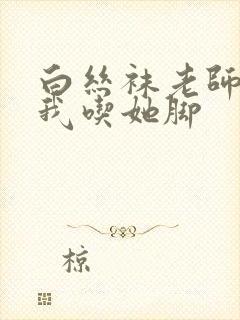 白丝袜老師
我喫她脚
椋